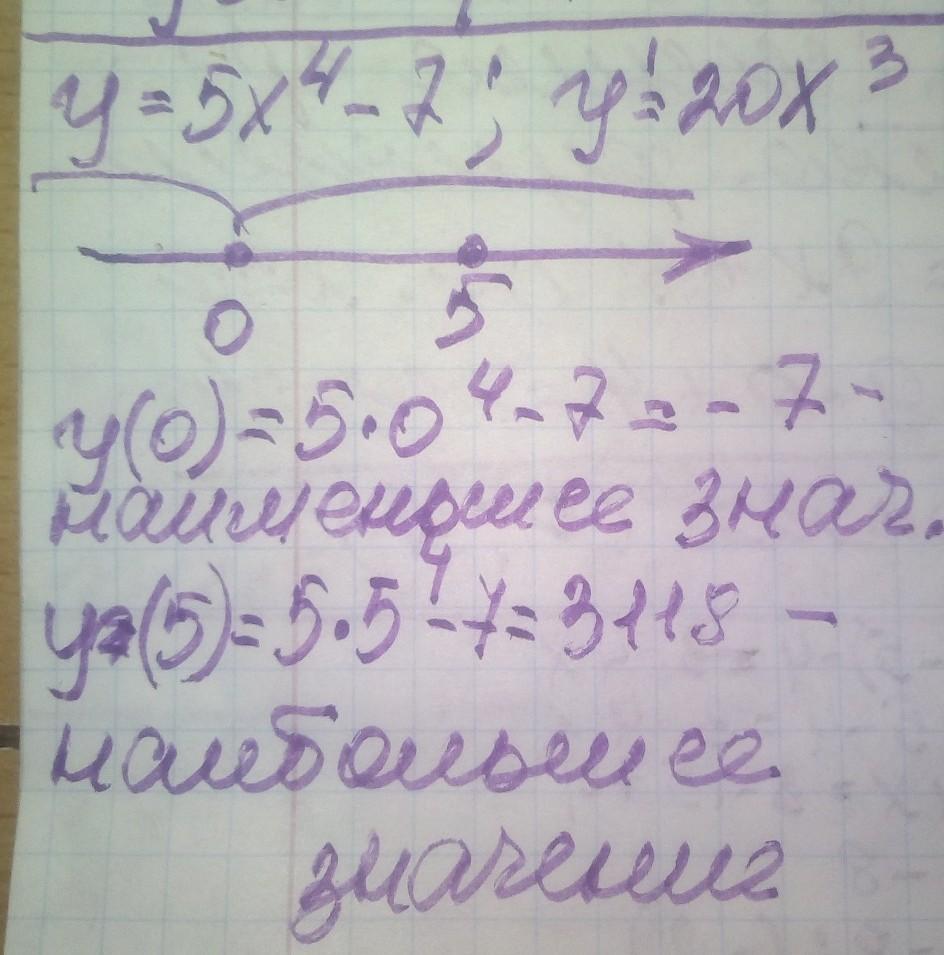 y = 5x⁴ - 7; y' = 20x³
0 5
y(0) = 5·0⁴ - 7 = -7 -
наименьшее знач.
y(5) = 5·5⁴ - 7 = 3118 -
наибольшее
значение